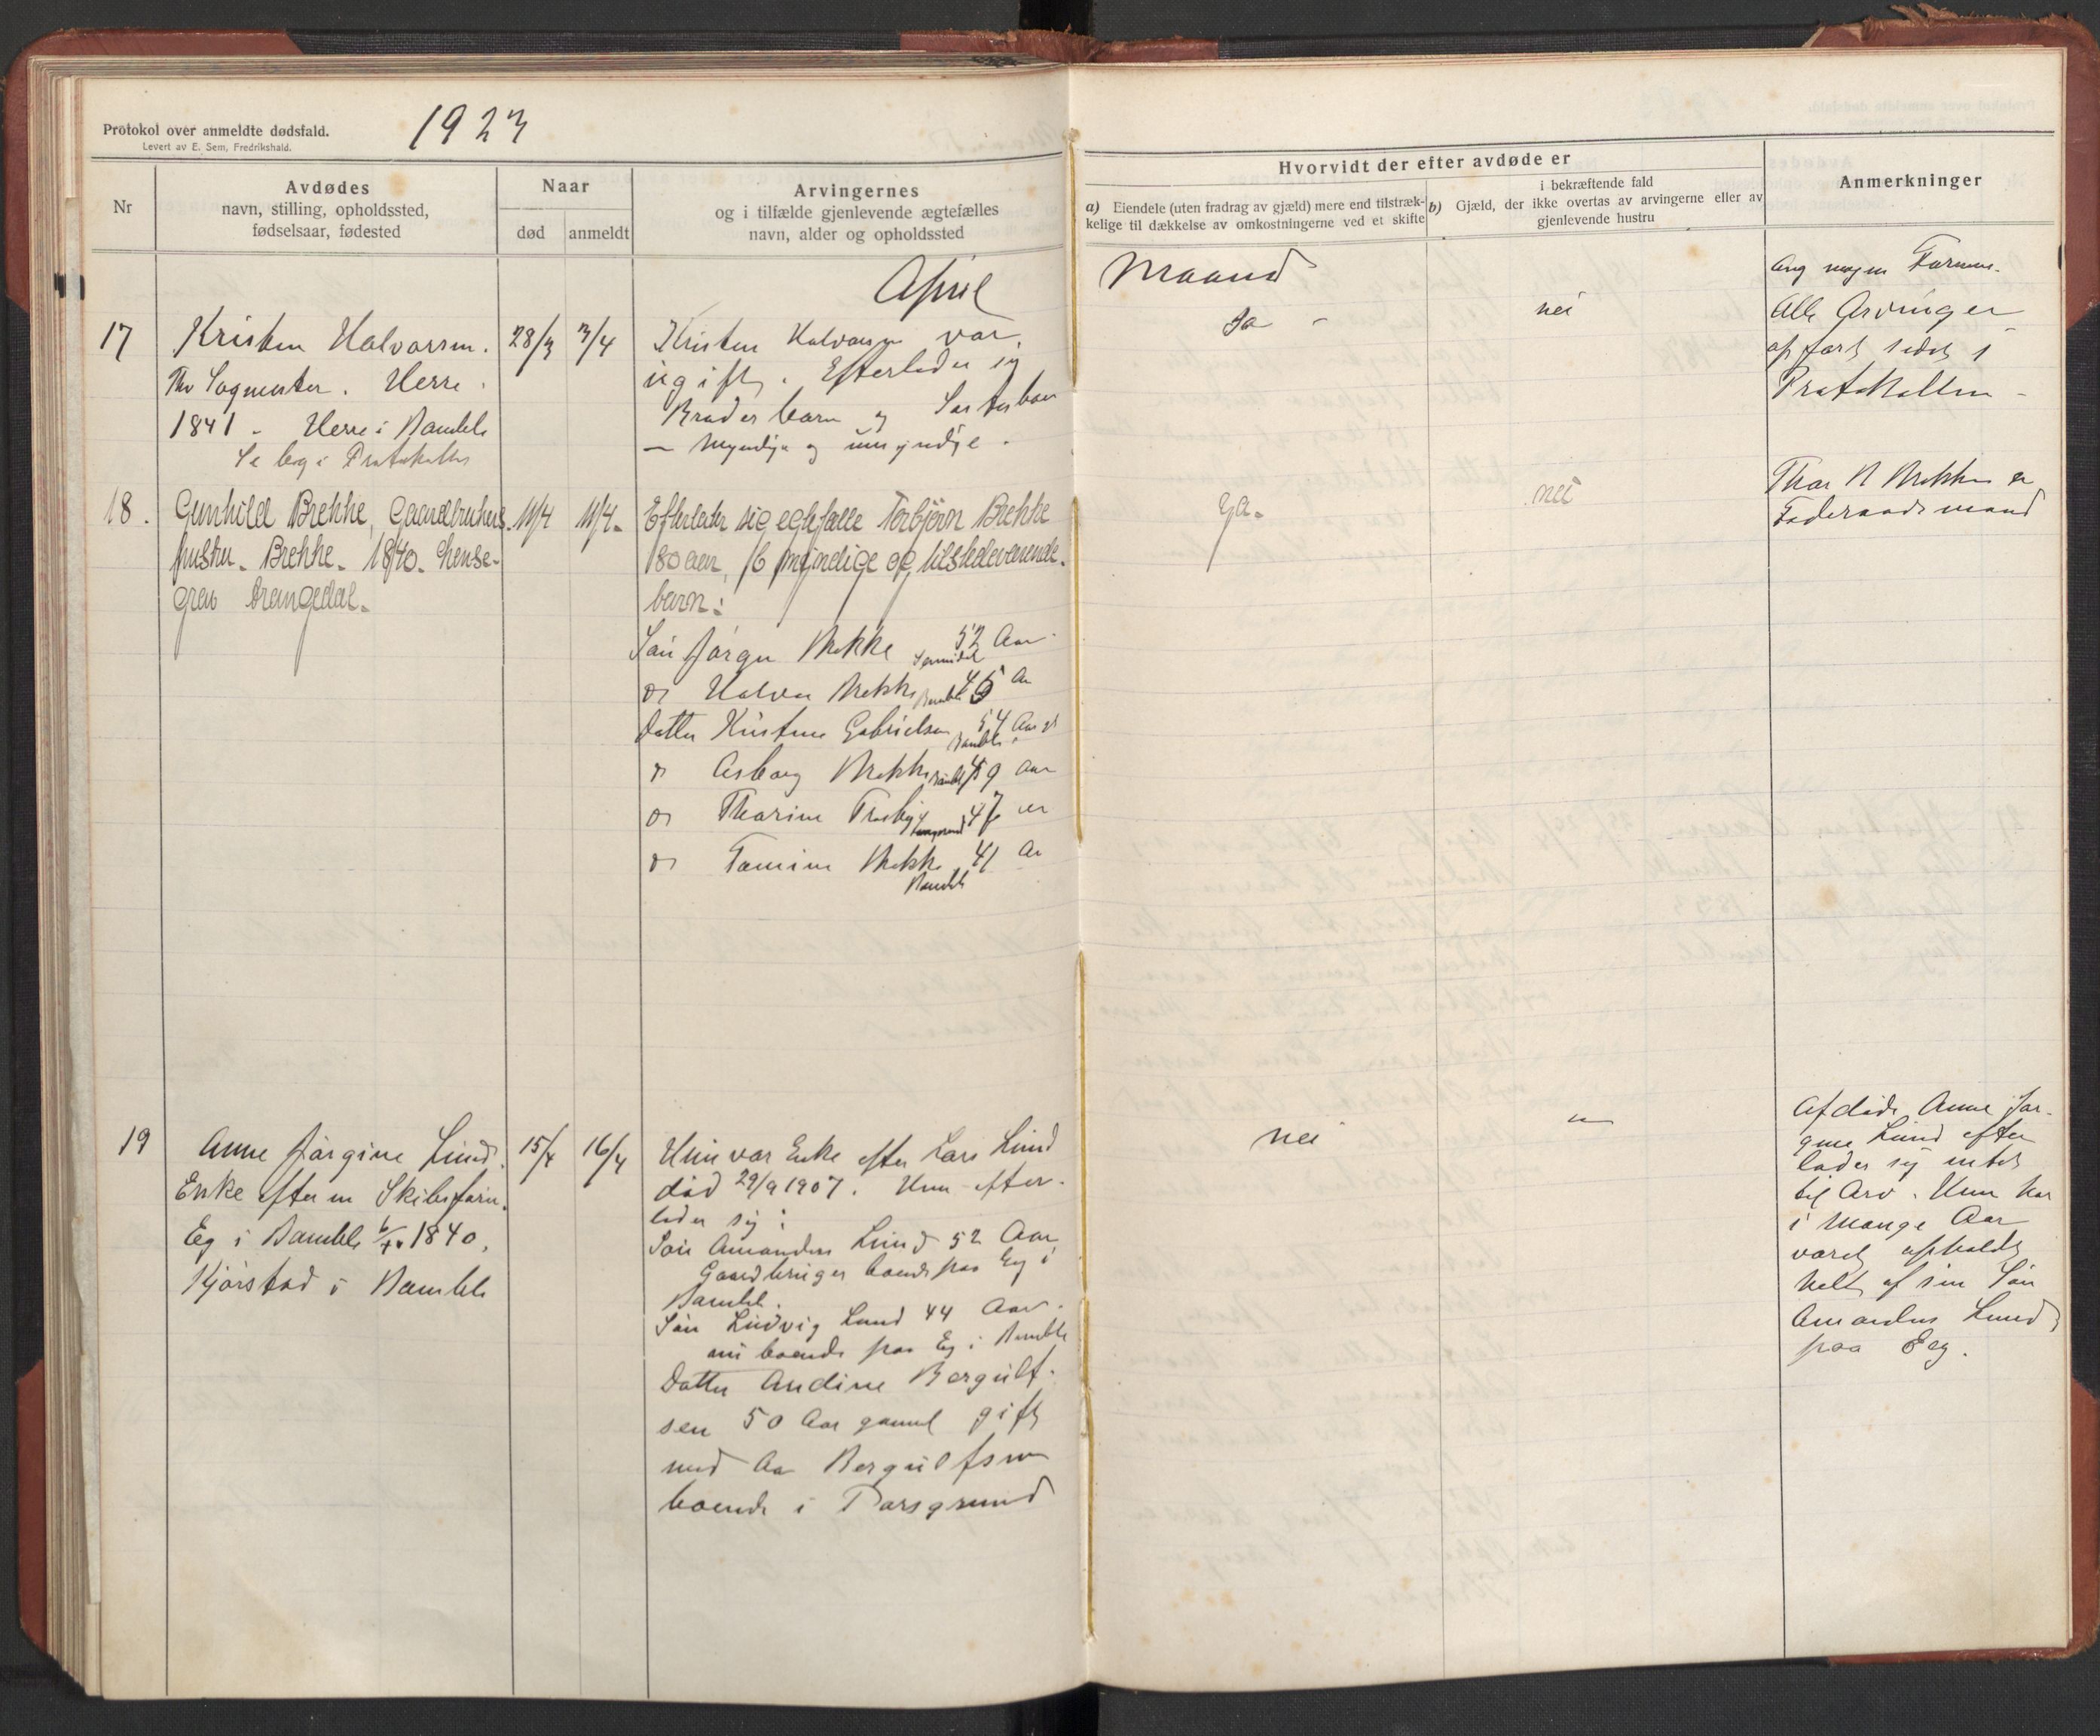 Protokol over anmeldte dødsfald.
Levert av E. Sem, Fredrikshald.
1923
Nr
Avdødes
navn, stilling, opholdssted,
fødselsaar, fødested
Naar
død
anmeldt
Arvingernes
og i tilfælde gjenlevende ægtefælles
navn, alder og opholdssted
Hvorvidt der efter avdøde er
a) Eiendele (uten fradrag av gjæld) mere end tilstræk-
kelige til dækkelse av omkostningerne ved et skifte
i bekræftende fald
b) Gjæld, der ikke overtas av arvingerne eller av
gjenlevende hustru
Anmerkninger
April
Maaned
17
Kristen Halvorsen.
Sagmester. Herre.
1841 - Herre i Bamble
Se bag i Protokollen
28/3
3/4
Kristen Halvorsen var
ugift. Efterlader sig
Broderbarn og Søsterbarn
- Myndige og umyndige.
Ja -
nei
Alle Arvinger
opført sidst i
Protokollen -
18.
Gunhild Brekke, Gaardbrukers
hustru. Brekke. 1840. Hense-
grav Drangedal.
11/4
11/4.
Efterlater sig egtefælle Torbjørn Brekke
80 aar, 6 myndige og tilstedeværende
barn:
Søn Jørgen Brekke 52 Aar
Sannidal
Do Halvor Brekke Bamble 45 Aar
Datter Kristine Gabrielsen 54 Aar
Bamble
Do Asborg Brekke Bamble 49 Aar
Do Thorine Trosby 47 Aar
Do Tomine Brekke 41 Aar
Bamble
Ja.
nei
Thor N Brekke er
Føderaadsmand
19
Anne Jørgine Lund.
Enke efter en Skibsfører.
Eg i Bamble 1840,
Kjørstad i Bamble
15/4
16/4
Hun var Enke efter Lars Lund
død 29/9 1907. Hun efter-
lader sig:
Søn Amandus Lund 52 Aar
Gaardbruger boende paa Eg i
Bamble.
Søn Ludvig Lund 44 Aar.
nu boende paa Eg i Bamble
Datter Andine Bergulf-
sen 50 Aar gammel gift
med Aa Bergulfsen
boende i Porsgrund
nei
"
Afdøde Anne Jør-
gine Lund efter
lader sig intet
til Arv. Hun har
i mange Aar
været opholdt
helt af sin Søn
Amandus Lund
paa Eeg.